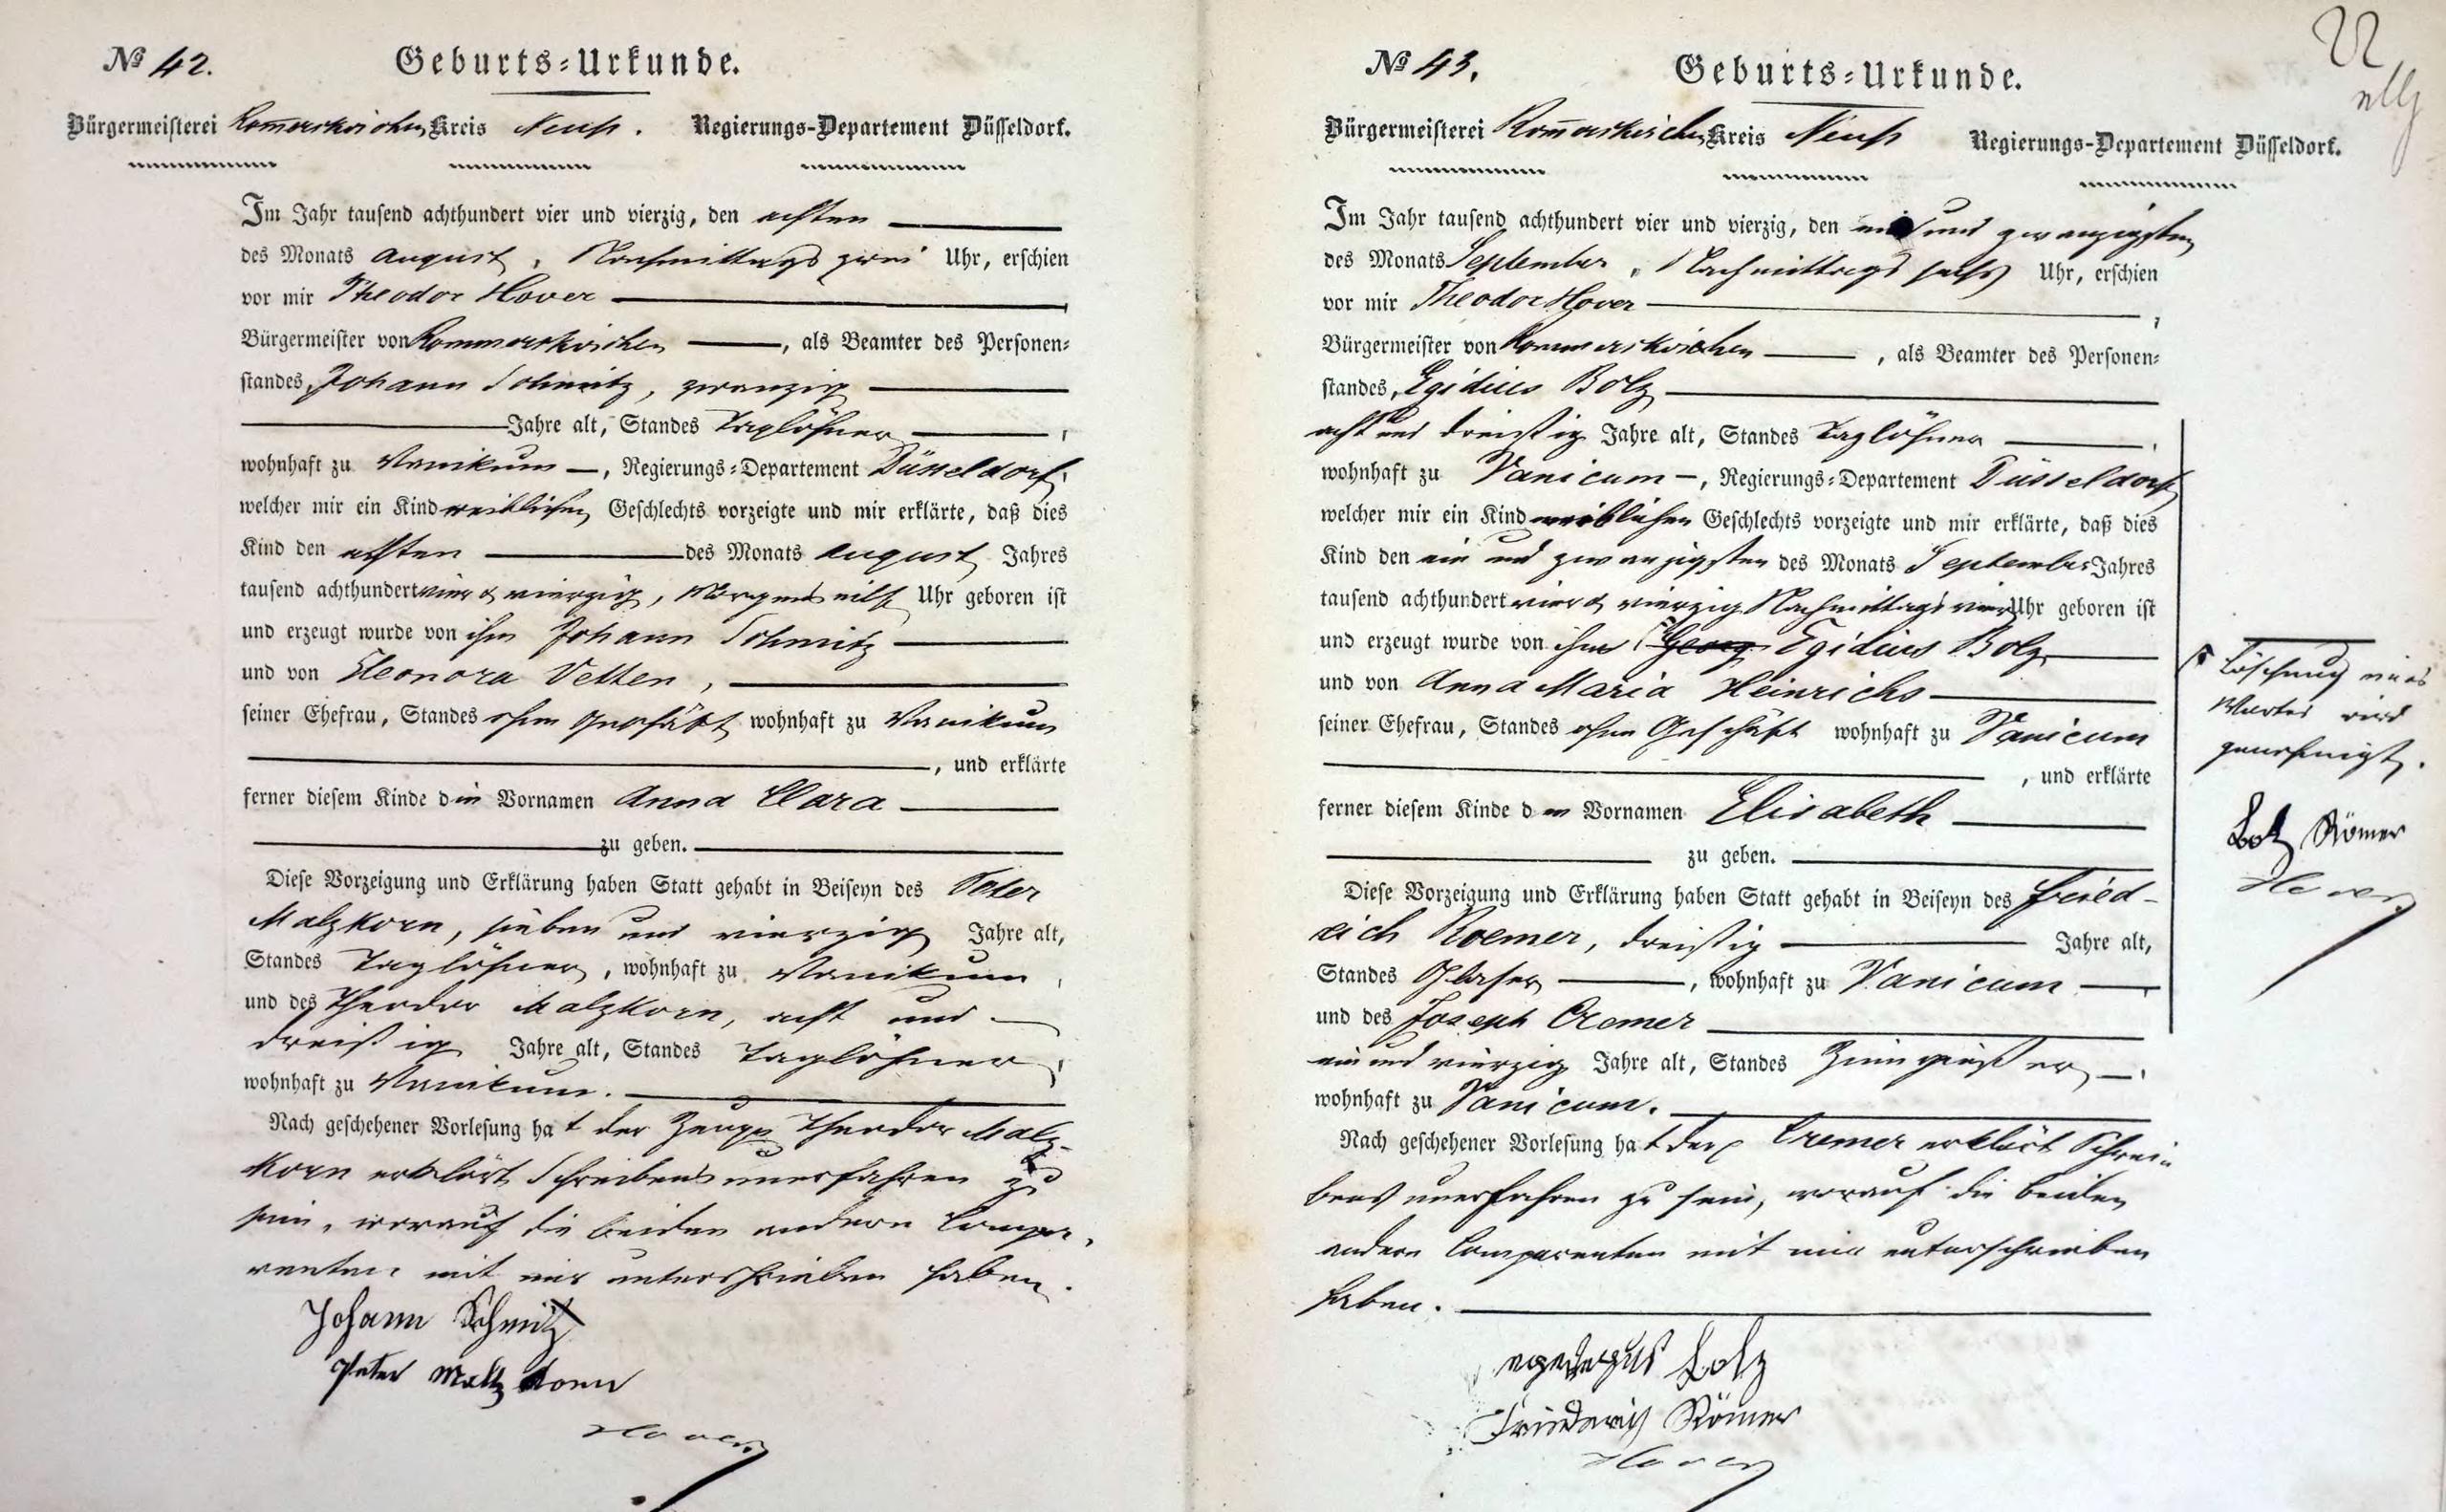 № 42.
Geburts-Urkunde.
Bürgermeisterei Rommerskirchen Kreis Neuß. Regierungs-Departement Düsseldorf.
Im Jahr tausend achthundert vier und vierzig, den achten
des Monats August, Nachmittags zwei Uhr, erschien
vor mir Theodor Hover
Bürgermeister von Rommerskirchen, als Beamter des Personen-
standes, Johann Schmitz, zwanzig
Jahre alt, Standes Taglöhner,
wohnhaft zu Vanikum, Regierungs-Departement Düsseldorf,
welcher mir ein Kind weiblichen Geschlechts vorzeigte und mir erklärte, daß dies
Kind den achten des Monats August Jahres
tausend achthundert vier & vierzig, Morgens eilf Uhr geboren ist
und erzeugt wurde von ihm Johann Schmitz
und von Eleonora Vetten,
seiner Ehefrau, Standes ohne Geschäft wohnhaft zu Vanikum
, und erklärte
ferner diesem Kinde den Vornamen Anna Clara
zu geben.
Diese Vorzeigung und Erklärung haben Statt gehabt in Beiseyn des Peter
Malzkorn, sieben und vierzig Jahre alt,
Standes Taglöhner, wohnhaft zu Vanikum,
und des Theodor Malzkorn, acht und
dreißig Jahre alt, Standes Taglöhner,
wohnhaft zu Vanikum.
Nach geschehener Vorlesung hat der Zeuge Theodor Malz-
korn erklärt Schreibens unerfahren zu
sein, worauf die beiden andern Compa-
renten mit mir unterschrieben haben.
Johann Schmitz
Peter Maltzkorn
Hover
22
№ 43.
Geburts-Urkunde.
Bürgermeisterei Rommerskirchen Kreis Neuß Regierungs-Departement Düsseldorf.
Im Jahr tausend achthundert vier und vierzig, den ein und zwanzigsten
des Monats September, Nachmittags sechs Uhr, erschien
vor mir Theodor Hover,
Bürgermeister von Rommerskirchen, als Beamter des Personen-
standes, Egidius Bolz
acht und dreißig Jahre alt, Standes Taglöhner,
wohnhaft zu Vanicum, Regierungs-Departement Düsseldorf
welcher mir ein Kind weiblichen Geschlechts vorzeigte und mir erklärte, daß dies
Kind den ein und zwanzigsten des Monats September Jahres
tausend achthundert vier & vierzig Nachmittags vier Uhr geboren ist
und erzeugt wurde von ihm Georg Egidius Bolz
und von Anna Maria Heinrichs
seiner Ehefrau, Standes ohne Geschäft wohnhaft zu Vanicum
, und erklärte
ferner diesem Kinde den Vornamen Elisabeth
zu geben.
Diese Vorzeigung und Erklärung haben Statt gehabt in Beiseyn des Fried-
rich Roemer, dreißig Jahre alt,
Standes Glaser, wohnhaft zu Vanicum,
und des Joseph Cremer
ein und vierzig Jahre alt, Standes Zinngießer,
wohnhaft zu Vanicum.
Nach geschehener Vorlesung hat der Cremer erklärt Schrei-
bens unerfahren zu sein, worauf die beiden
andern Comparenten mit mir unterschrieben
haben.
Bolz
Friederich Römer
Hover
Löschung eines
Wortes wird
genehmigt.
Bolz Römer
Hover